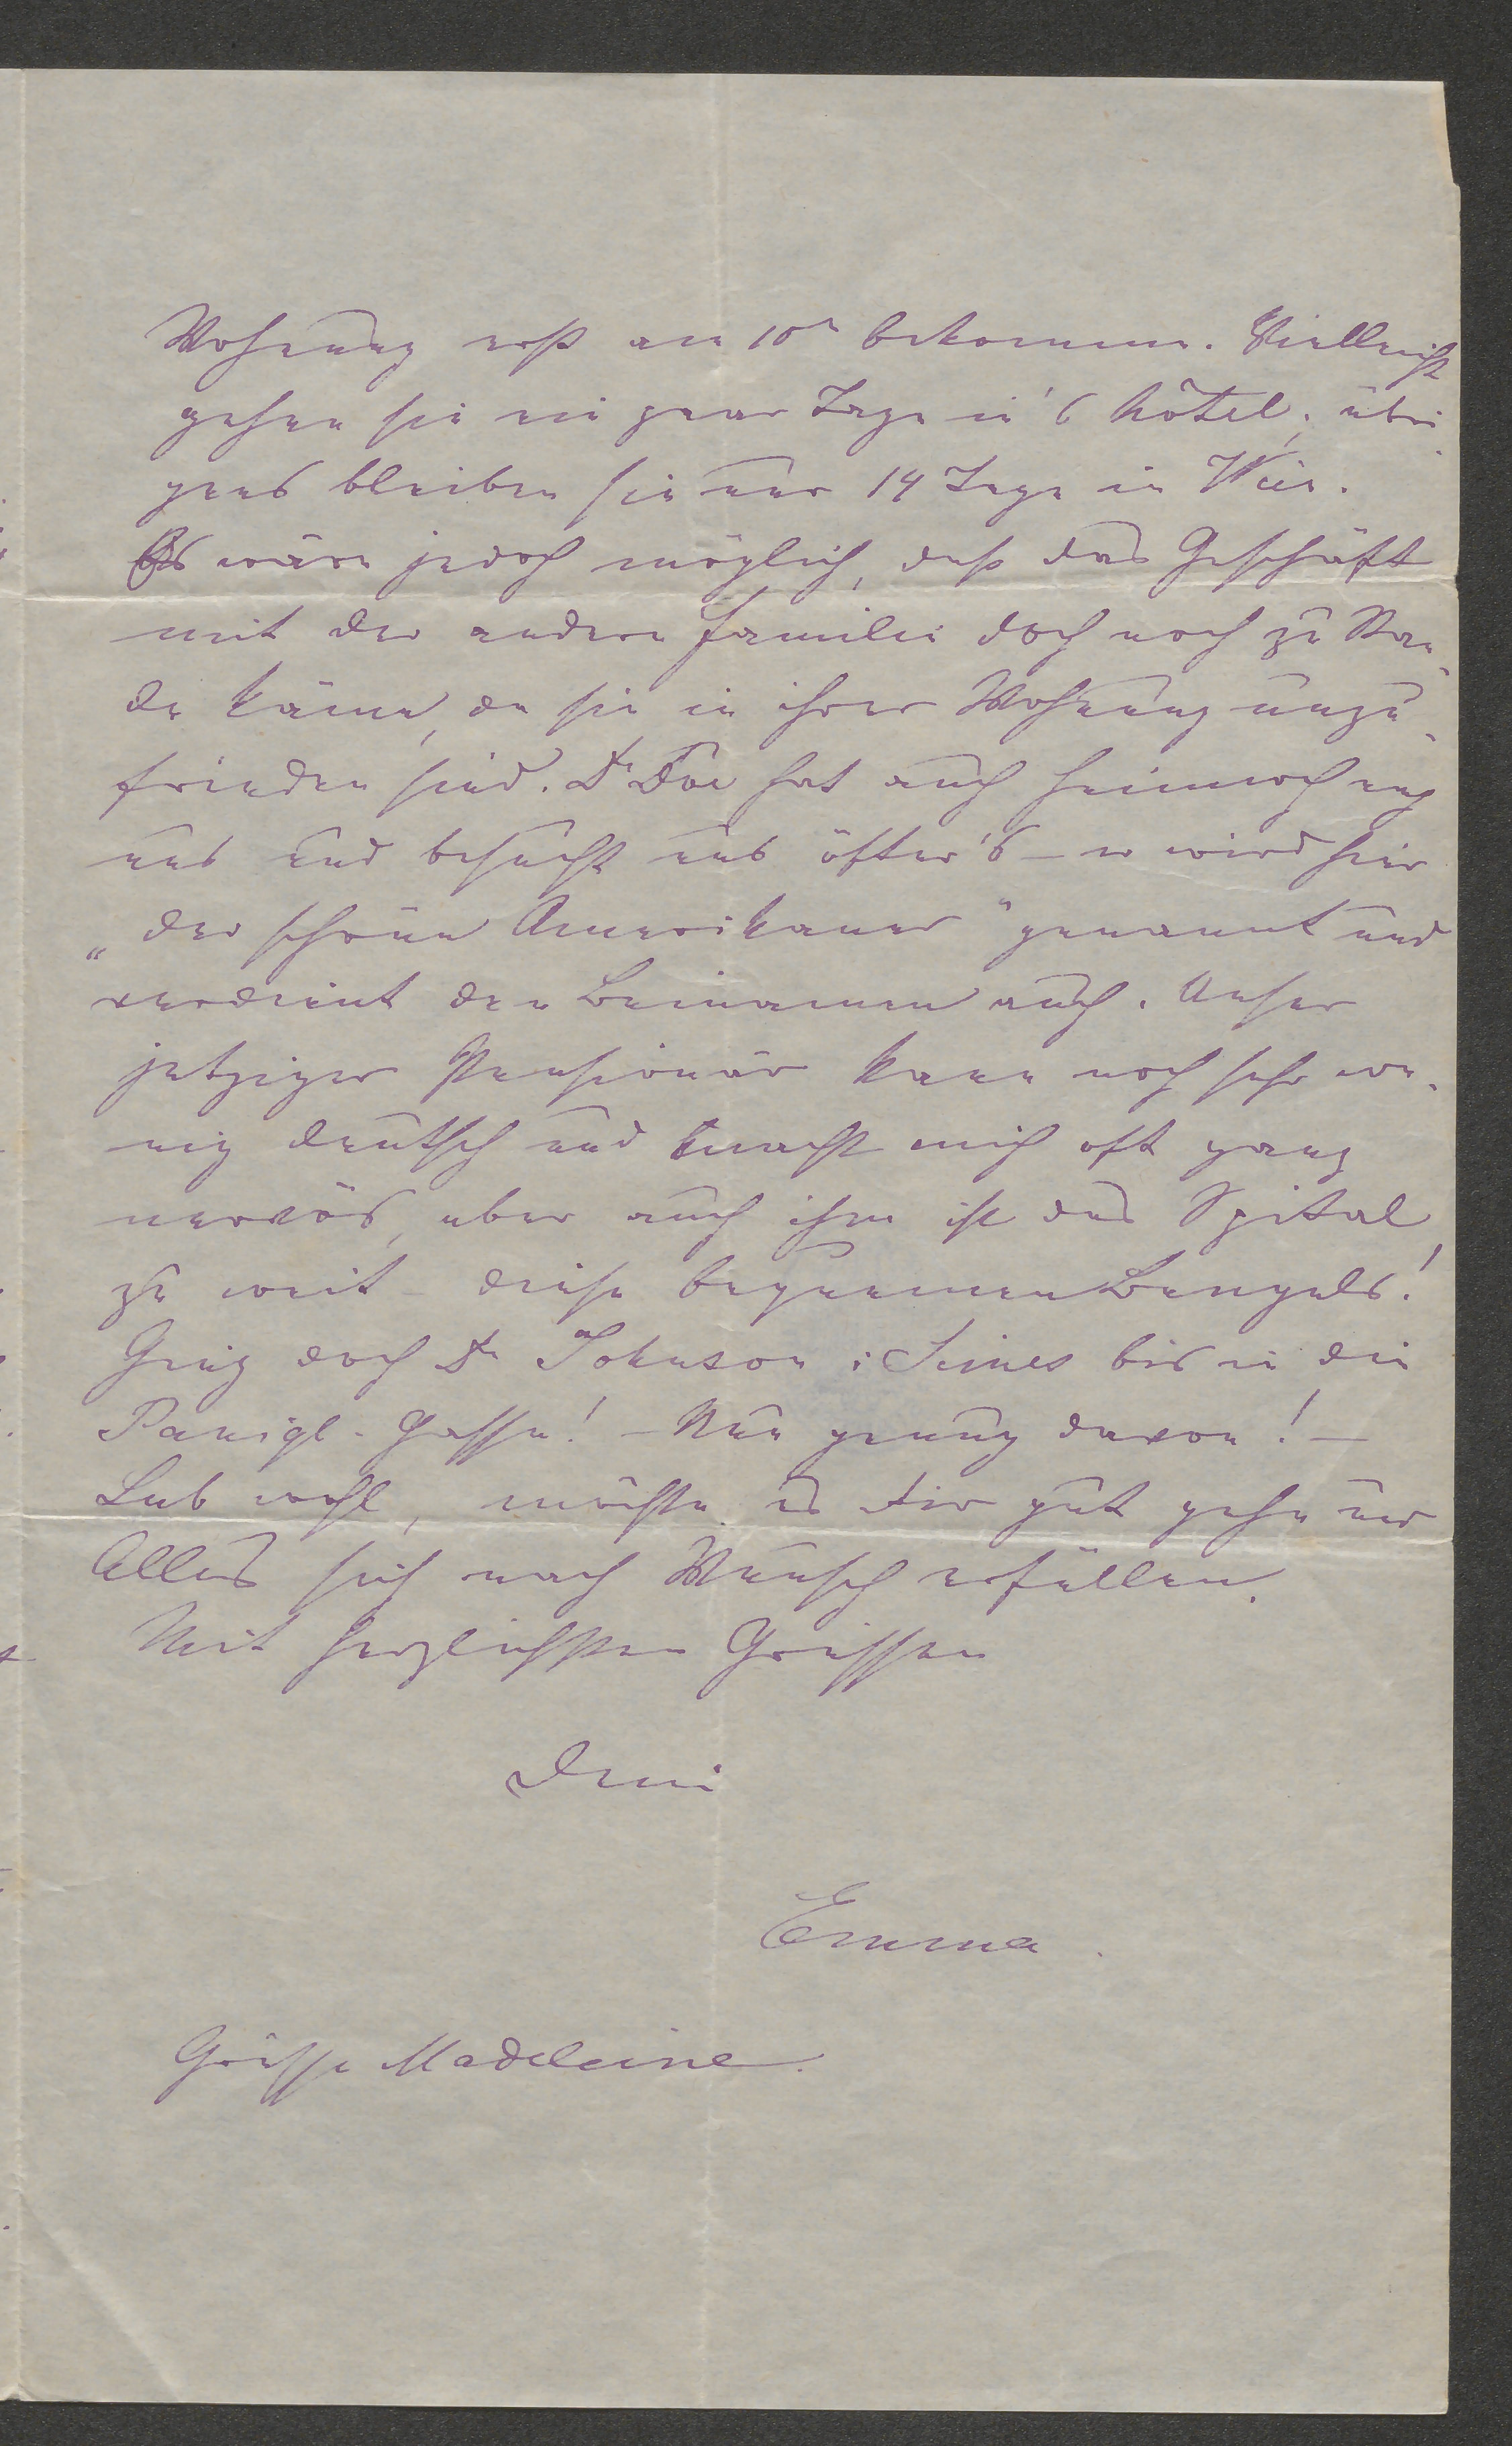 Wohnung erst am 10n bekommen. Vielleicht
gehen sie ein paar Tage in's Hôtel; übri-
gens bleiben sie nur 14 Tage in Wien.
Es wäre jedoch möglich, daß das Geschäft
mit der andern Familie doch noch zu Stan-
de käme, da sie in ihrer Wohnung unzu-
frieden sind. Dr hat auch Heimweh nach
uns und besucht uns öfter's – er wird hier
„der schöne Amerikaner" genannt und
verdient den Beinamen auch. Unser
jetziger Pensionär kann noch sehr we-
nig deutsch und macht mich oft ganz
nervös, aber auch ihm ist das Spital
zu weit – diese bequemen Bengels!
Ging doch Dr Johnson bis in die
Panigl-Gasse! – Nun genug davon! –
Leb wohl, möchte es Dir gut gehn und
Alles sich nach Wunsch erfüllen.
Mit herzlichsten Grüssen
Deine
Emma.
Grüsse Madeleine.